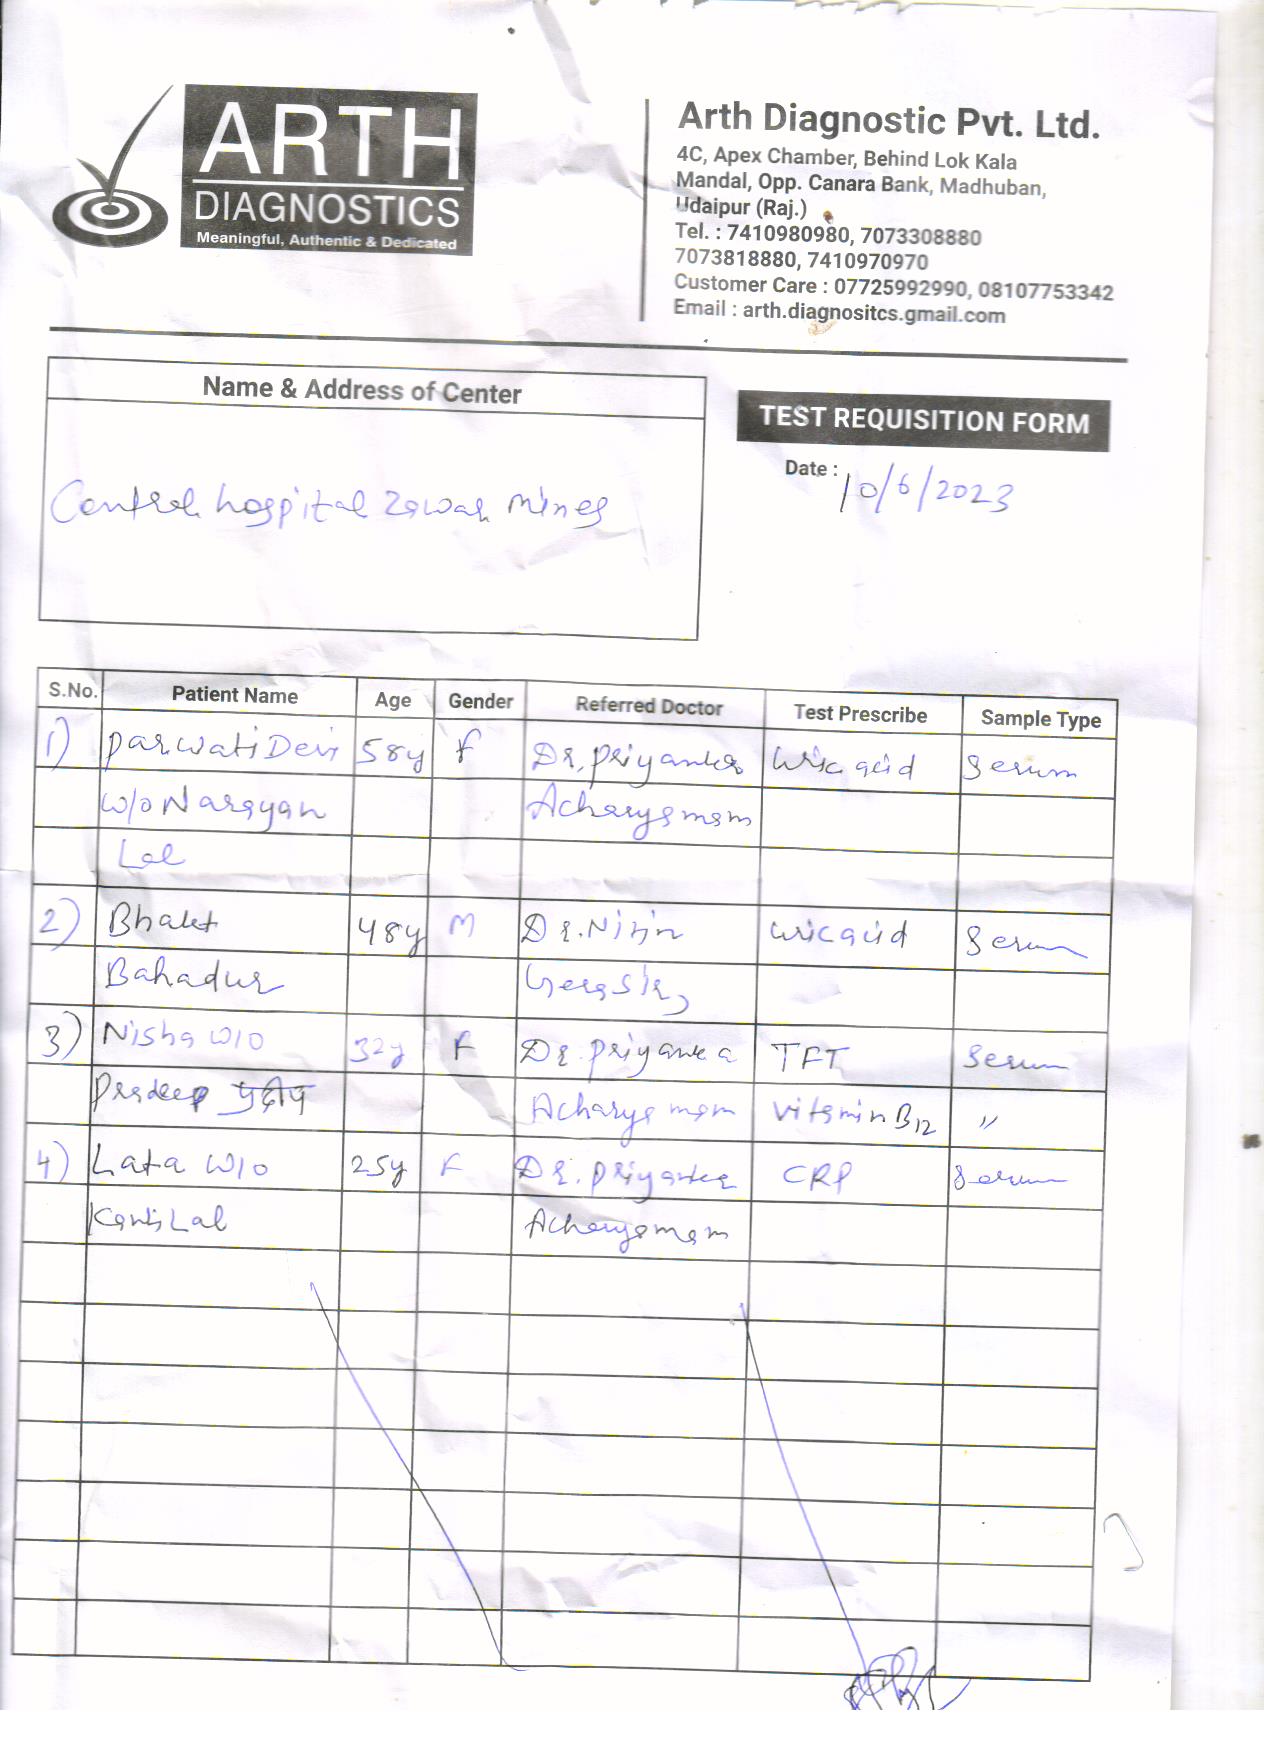 ARTH
DIAGNOSTICS
Meaningful, Authentic & Dedicated
Arth Diagnostic Pvt. Ltd.
4C, Apex Chamber, Behind Lok Kala
Mandal, Opp. Canara Bank, Madhuban,
Udaipur (Raj.)
Tel. : 7410980980, 7073308880
7073818880, 7410970970
Customer Care : 07725992990, 08107753342
Email : arth.diagnositcs.gmail.com
Name & Address of Center
TEST REQUISITION FORM
Date : 10/6/2023
Central hospital Zawar Mines
S.No. Patient Name Age Gender Referred Doctor Test Prescribe Sample Type
1) Parwati Devi 58y F Dr. Priyanka Uric acid Serum
W/o Narayan Acharya mam
Lal
2) Bhakt 48y M Dr. Nitin Uric acid Serum
Bahadur Sir
3) Nisha W/O 32y F Dr. Priyanka TFT Serum
Pradeep Acharya mam Vitamin B12 "
4) Lata W/O 25y F Dr. Priyanka CRP Serum
Lal Acharya mam